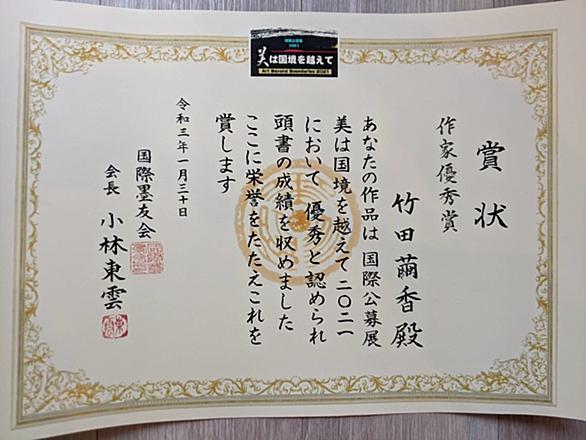 国際公募展
2021
美は国境を越えて
Art Beyond Boundaries 2021
賞状
作家優秀賞
竹田繭香殿
あなたの作品は国際公募展
美は国境を越えて二〇二一
において優秀と認められ
頭書の成績を収めました
ここに栄誉をたたえこれを
賞します
令和三年一月三十日
国際墨友会
会長 小林東雲